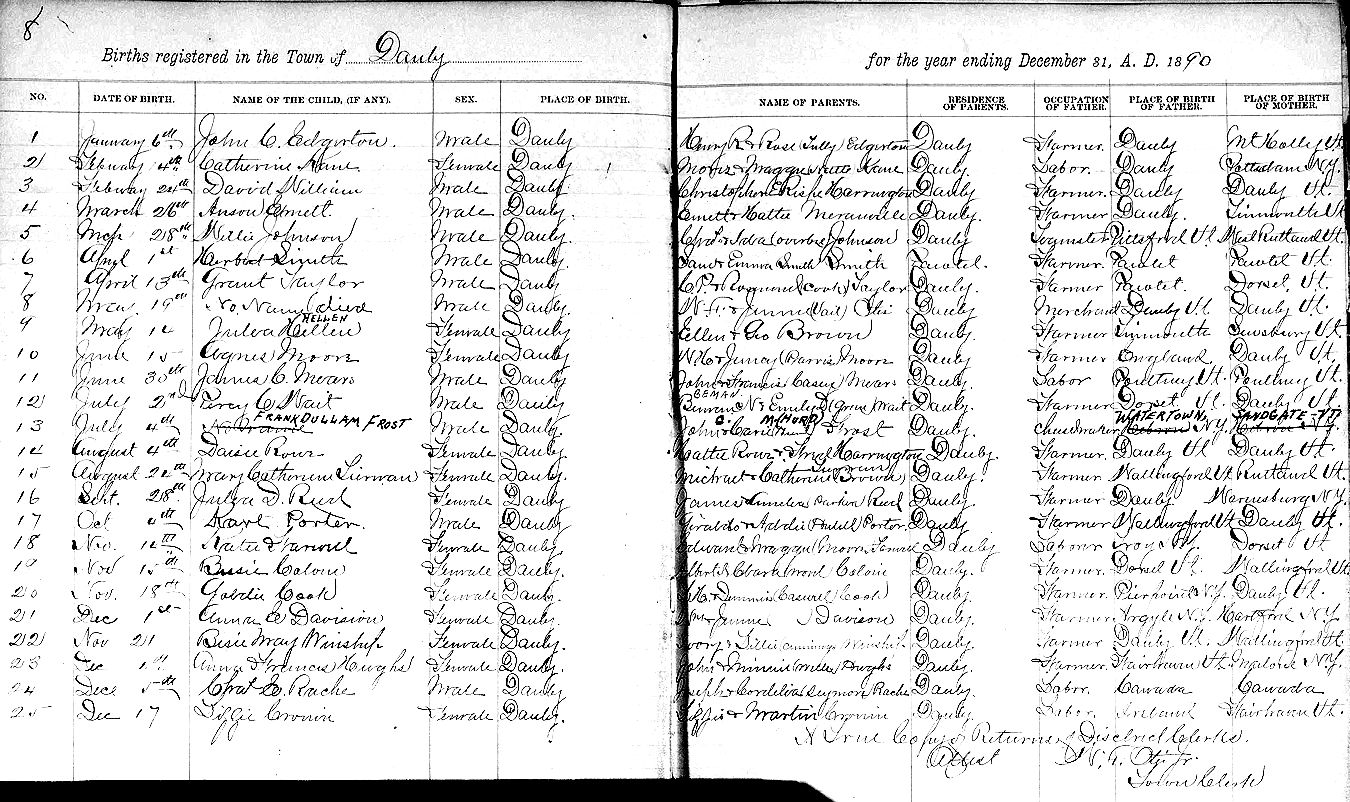 8
Births registered in the Town of Danby for the year ending December 31, A. D. 1890
NO. DATE OF BIRTH. NAME OF THE CHILD, (IF ANY). SEX. PLACE OF BIRTH. NAME OF PARENTS. RESIDENCE OF PARENTS. OCCUPATION OF FATHER. PLACE OF BIRTH OF FATHER. PLACE OF BIRTH OF MOTHER.
1 January 6th John C. Edgerton. Male Danby Henry R & Rose (Tully) Edgerton Danby Farmer. Danby Mt Holly Vt
2 Febuary 4th Catherine Kane Female Danby Kane Danby. Labor. Danby N.Y.
3 Febuary 24th David William Male Danby Harrington Danby. Farmer. Danby Danby Vt.
4 March 26th Anson Emett. Male Danby. Emett & Hattie Danby. Farmer Danby. Vt
5 Mch 28th Willie Johnson Male Danby. Johnson Danby Teamster Pittsford Vt West Rutland Vt.
6 Apl 1st Herbert Smith Male Danby. & Emma Smith Pawlet. Farmer. Pawlet Pawlet Vt.
7 April 13th Grant Taylor Male Danby. (Cook) Taylor Danby. Farmer Pawlet. Dorset Vt.
8 May 19th No Name (died Male Danby. (Vail) Otis Danby. Merchant Danby Vt Danby Vt.
9 May 14 Julia Hellen HELLEN Female Danby Ellen & Geo Brown Danby. Farmer Vt.
10 June 15 Agnes Moore Female Danby. (Harris) Moore Danby. Farmer England. Danby Vt.
11 June 30th James C. Mears Male Danby John & Francis (Casey) Mears Danby. Labor Poultney Vt. Poultney Vt.
12 July 2nd Percy C. Wait Male Danby. BEMAN N & Emily D (Green) Wait Danby. Farmer Dorset Vt. Danby Vt.
13 July 4th No Name FRANK DULLAM FROST Male Danby. John C. & Carie (HURD) Frost Danby. WATERTOWN N.Y. SANDGATE VT
14 August 4th Daisie Rowe Female Danby Hattie Rowe & Harrington Danby Farmer. Danby Vt Danby Vt.
15 August 22th Mary Catherine Female Danby. Michael & Catherine (Brown) Danby. Farmer Wallingford Vt Rutland Vt.
16 Sept. 28th Julia D. Female Danby. James Danby. Farmer Danby N.Y.
17 Oct 4th Karl Porter. Male Danby & Addie Porter. Danby Farmer Wallingford Vt Danby Vt.
18 Nov. 12th Katie Female Danby. Edward & Maggie (Moore) Danby Laborer Troy N.Y. Dorset Vt
19 Nov 15th Female Danby. Albert & Clara Danby. Farmer. Dorset Vt. Wallingford Vt
20 Nov. 18th Goldie Cook Female Danby. (Caswell) Cook Danby. Farmer Pierpoint N.Y. Danby Vt.
21 Dec 1st Anna E Davision Female Danby. Jennie Davison Danby. Farmer Argyle N.Y. Hartford N.Y.
22 Nov 21 Besie May Winship Female Danby. Winship. Danby. Farmer Danby Vt. Wallingford Vt.
23 Dec Anna Francis Hughs Female Danby. John & Minnie Hughs Danby. Farmer. Fairhaven Vt. Malone N.Y.
24 Dec 5th Chas E Rache Male Danby. Joseph & Cordelia Seymore Rache Danby. Labor. Canada Canada
25 Dec 17 Lizzie Cronin Female Danby. Lizzie & Martin Cronin Danby. Labor. Ireland Fairhaven Vt.
A True Copy of Returns of District Clerks.
Attest N. F. Otis Jr.
Town Clerk